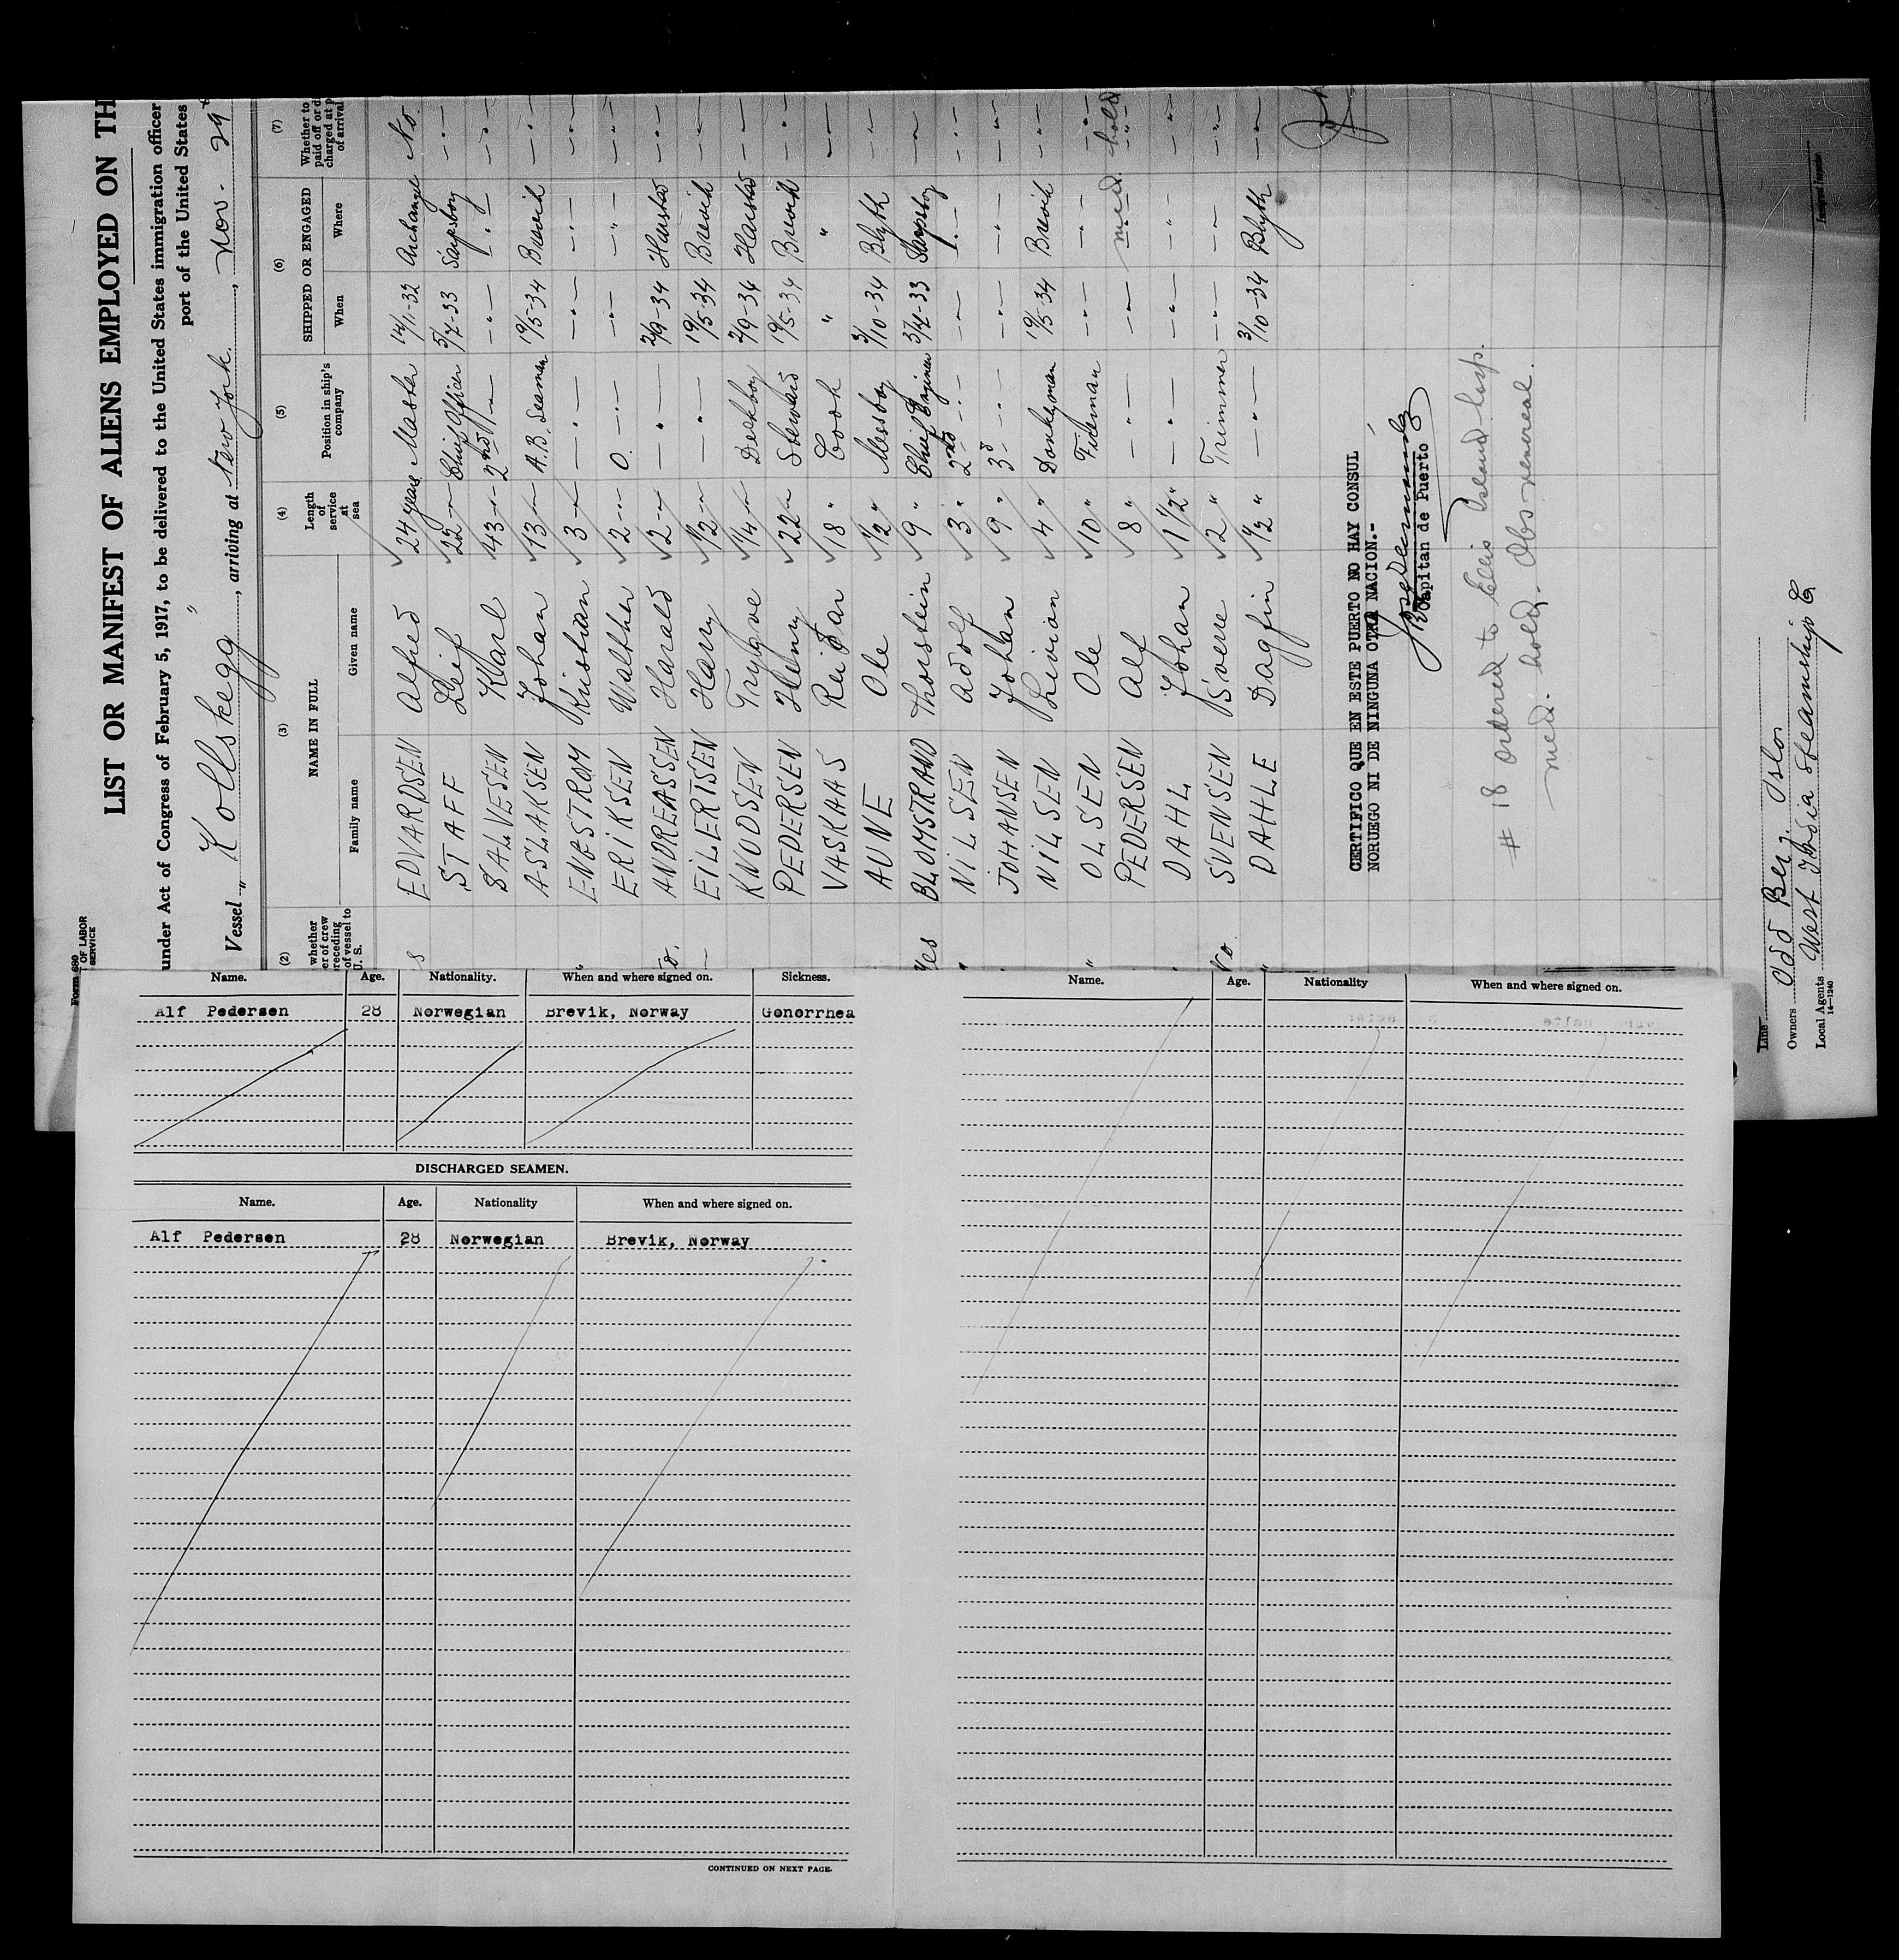 Form 689
T OF LABOR
SERVICE
LIST OR MANIFEST OF ALIENS EMPLOYED ON TH
under Act of Congress of February 5, 1917, to be delivered to the United States immigration officer
port of the United States
Vessel " Kollskegg " , arriving at New York. , Nov. 29
(2) (3) (4) (5) (6) (7)
whether
er of crew
receding
of vessel to
U. S.
NAME IN FULL
Family name Given name
Length of service at sea
Position in ship's company
SHIPPED OR ENGAGED
When Where
Whether to
paid off or d
charged at p
of arrival
s EDVARDSEN Alfred 24 years Master 14/11-32 Archangel No.
STAFF Leif 22 - Chief Officer 5/7-33 Sarpsborg -"-
SALVESEN Karl 43 - 2nd -"- -"- -"- -"-
ASLAKSEN Johan 13 - A.B. Seaman 19/5-34 Brevik -"-
ENGSTROM Kristian 3 - -"- -"- -"- -"-
ERIKSEN Walther 2 - O. -"- -"- -"- -"-
ANDREASSEN Harald 2 - -"- 2/9-34 Harstad -"-
EILERTSEN Harry 1/2 - -"- 19/5-34 Brevik -"-
KNUDSEN Trygve 1/4 - Deckboy 2/9-34 Harstad -"-
PEDERSEN Henry 22 - Steward 19/5-34 Brevik -"-
VASKAAS Reidar 18 " Cook " " -"-
AUNE Ole 1/2 " Messboy 3/10-34 Blyth -"-
Yes BLOMSTRAND Thorstein 9 " Chief Engineer 3/4-33 Sarpsborg -"-
" NILSEN Adolf 3 " 2nd -"- -"- -"- -"-
JOHANSEN Johan 9 " 3d -"- -"- -"- -"-
NILSEN Livion 4 " Donkeyman 19/5-34 Brevik -"-
" OLSEN Ole 10 " Fireman -"- -"- -"-
PEDERSEN Alf 8 " -"- -"- med. hold
" DAHL Johan 1 1/2 " -"- -"- -"- -"-
No. SVENSEN Sverre 2 " Trimmer -"- -"- -"-
" DAHLE Dagfin 1/2 " -"- 3/10-34 Blyth -"-
CERTIFICO QUE EN ESTE PUERTO NO HAY CONSUL
NORUEGO NI DE NINGUNA OTRA NACION.-
Capitan de Puerto
# 18 ordered to Ellis Island hosp.
med. hold. Obs venereal.
Line
Owners Odd Berg. Oslo
Local Agents West India Steamship Co
14-1240
Immigrant Inspector
Name. Age. Nationality. When and where signed on. Sickness.
Alf Pedersen 28 Norwegian Brevik, Norway Gonorrhea
DISCHARGED SEAMEN.
Name. Age. Nationality When and where signed on.
Alf Pedersen 28 Norwegian Brevik, Norway
CONTINUED ON NEXT PAGE.
Name. Age. Nationality When and where signed on.